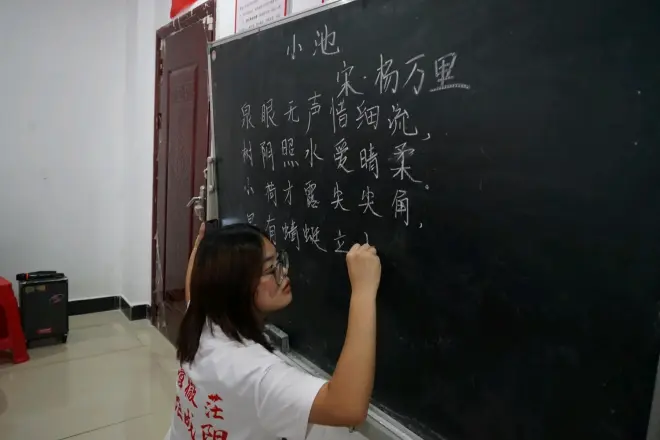 小池
宋·杨万里
泉眼无声惜细流,
树阴照水爱晴柔。
小荷才露尖尖角,
早有蜻蜓立
茫
成阴